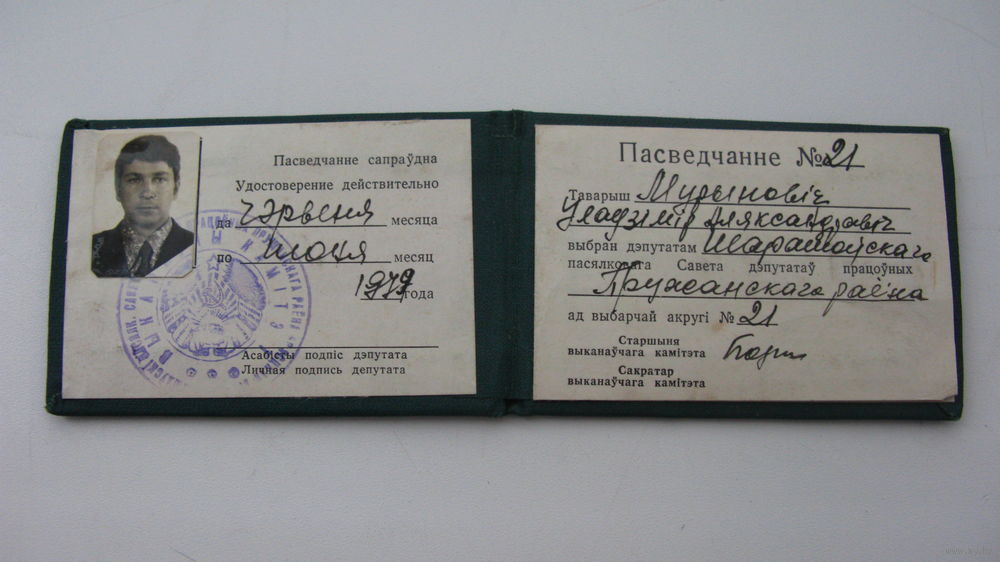 Пасведчанне сапраўдна
Удостоверение действительно
да чэрвеня месяца
по июня месяц
1979 года
Асабісты подпіс дэпутата
Личная подпись депутата
Пасведчанне № 21
Таварыш Мурыновіч
Уладзімір Аляксандравіч
выбран дэпутатам Шарашоўскага
пасялковага Савета дэпутатаў працоўных
Пружанскага раёна
ад выбарчай акругі № 21
Старшыня
выканаўчага камітэта
Сакратар
выканаўчага камітэта